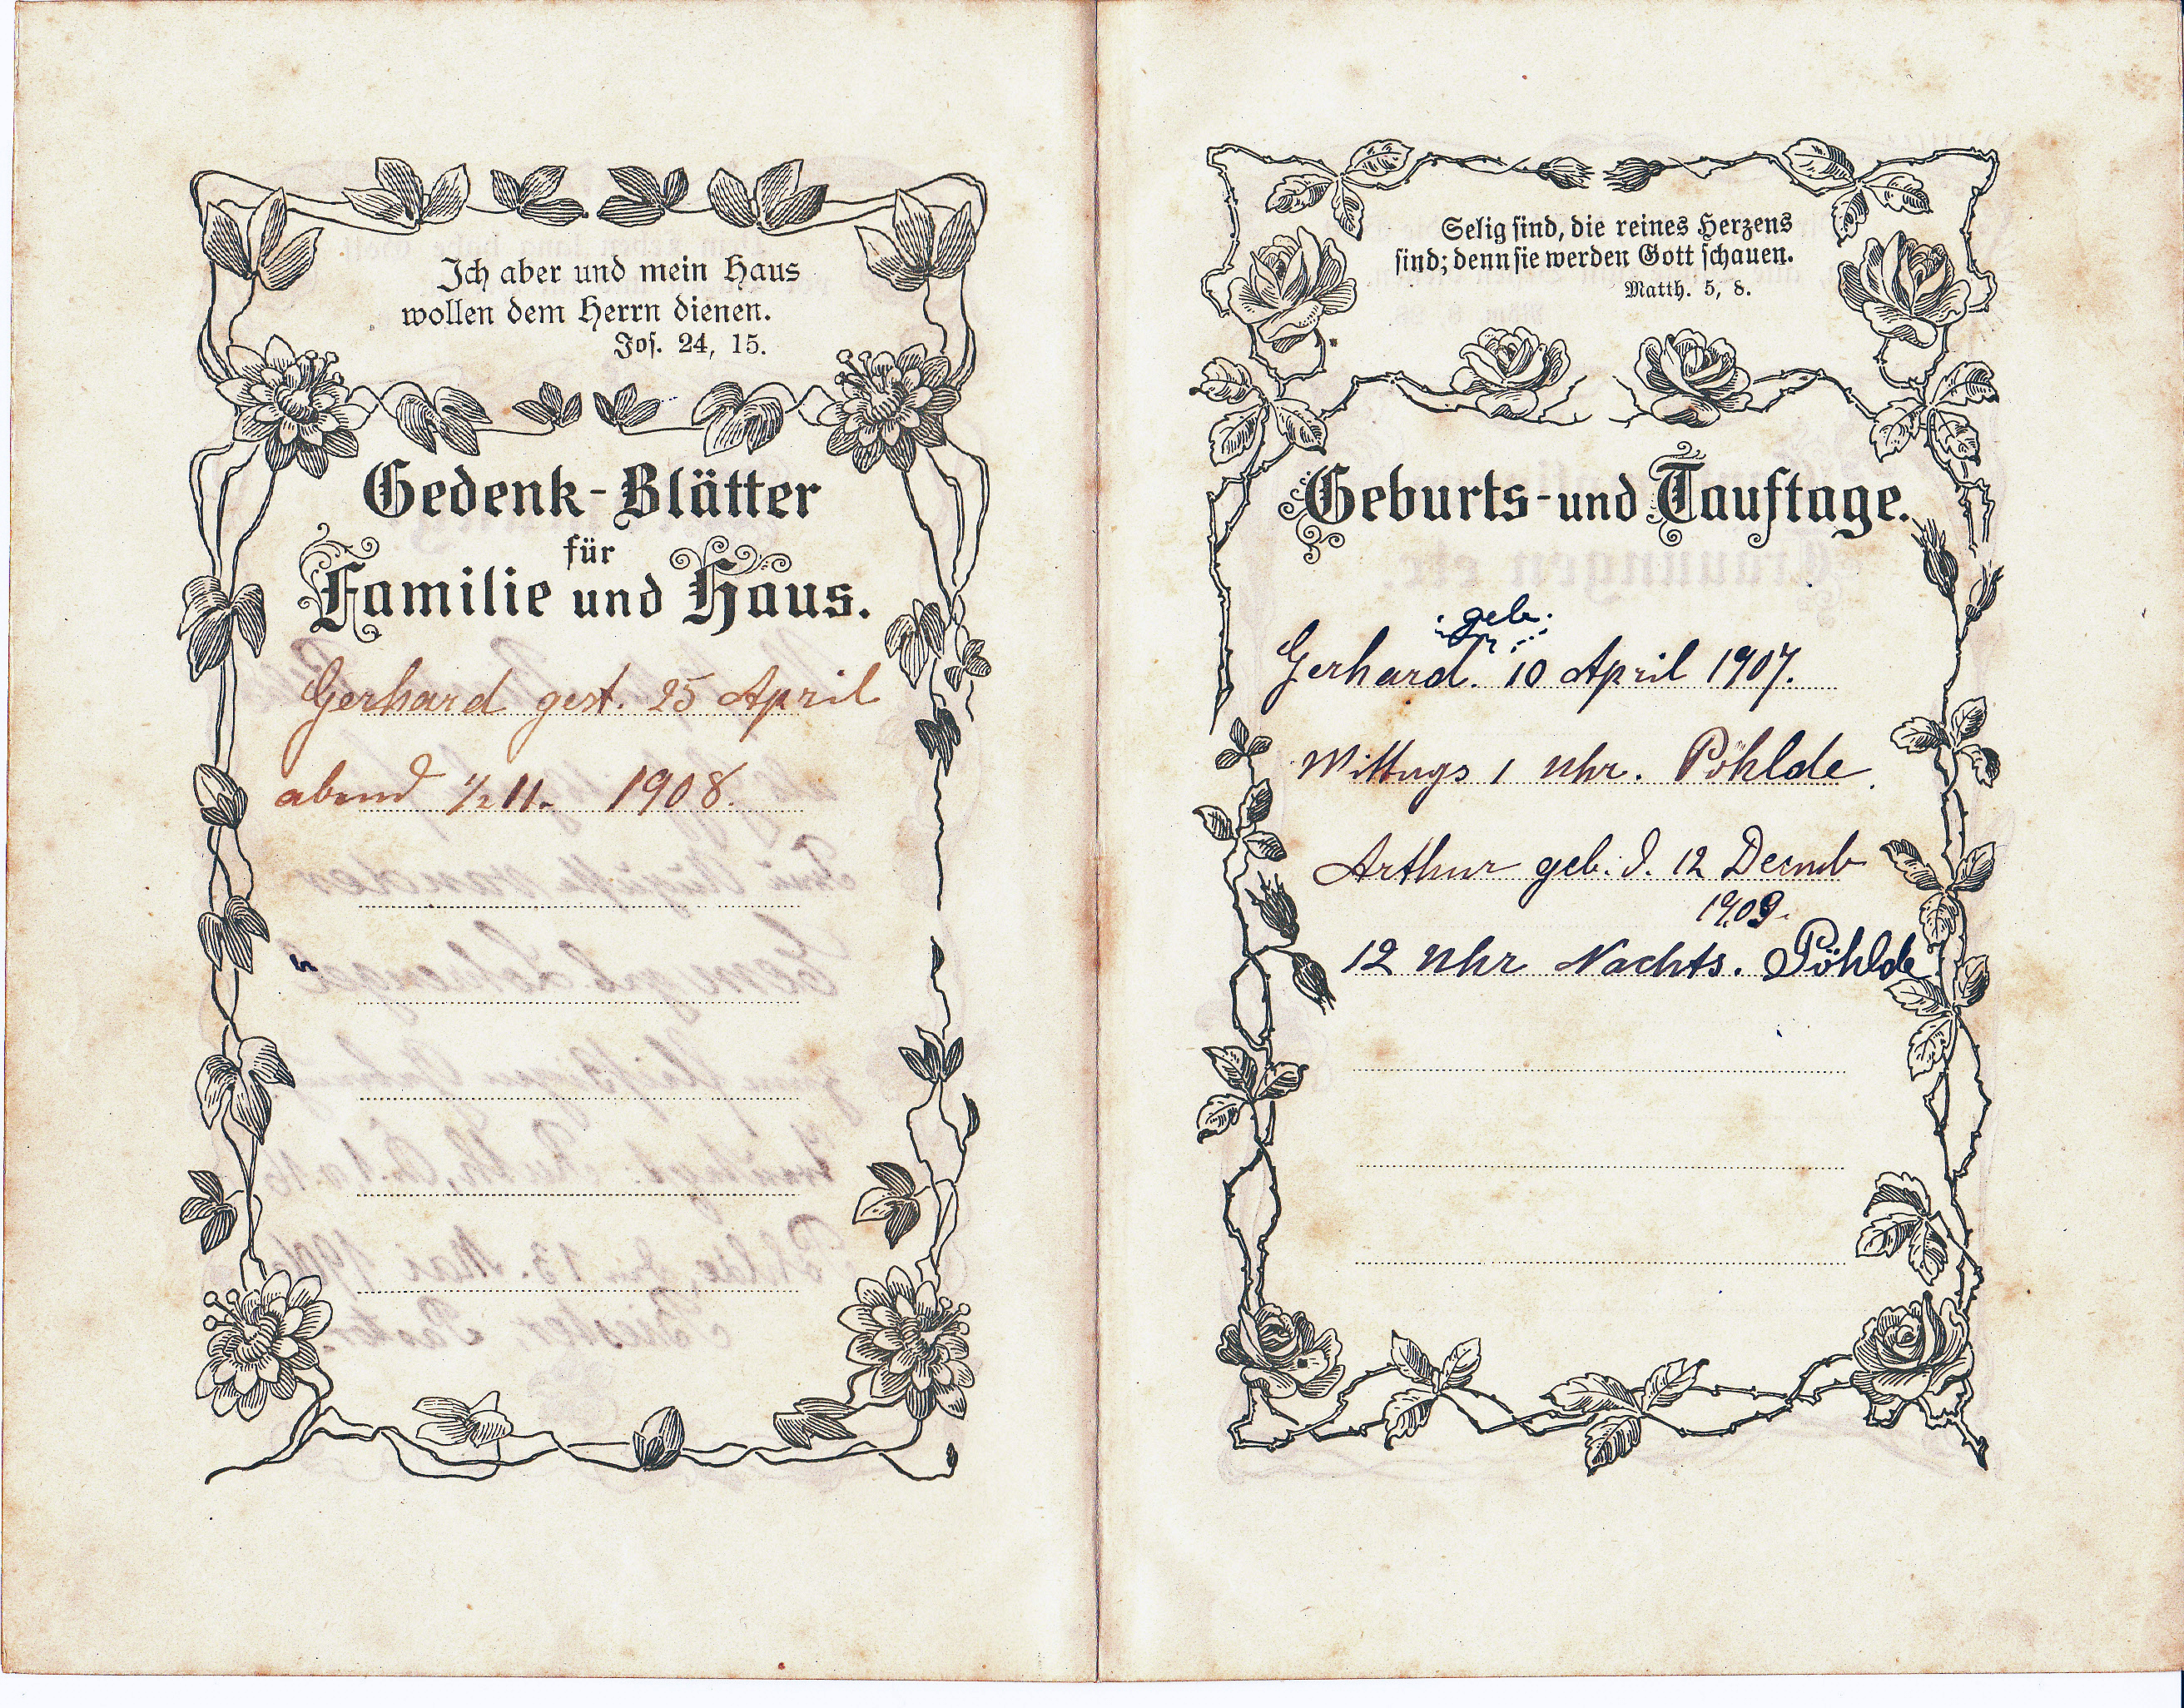 Ich aber und mein Haus
wollen dem Herrn dienen.
Jos. 24, 15.
Gedenk-Blätter
für
Familie und Haus.
Gerhard gest. 25 April
abend ½11. 1908.
Selig sind, die reines Herzens
sind; denn sie werden Gott schauen.
Matth. 5, 8.
Geburts- und Tauftage.
geb.
Gerhard. 10 April 1907.
Mittags 1 Uhr. Pöhlde.
Arthur geb. d. 12 Decmb
1909.
12 Uhr Nachts. Pöhlde